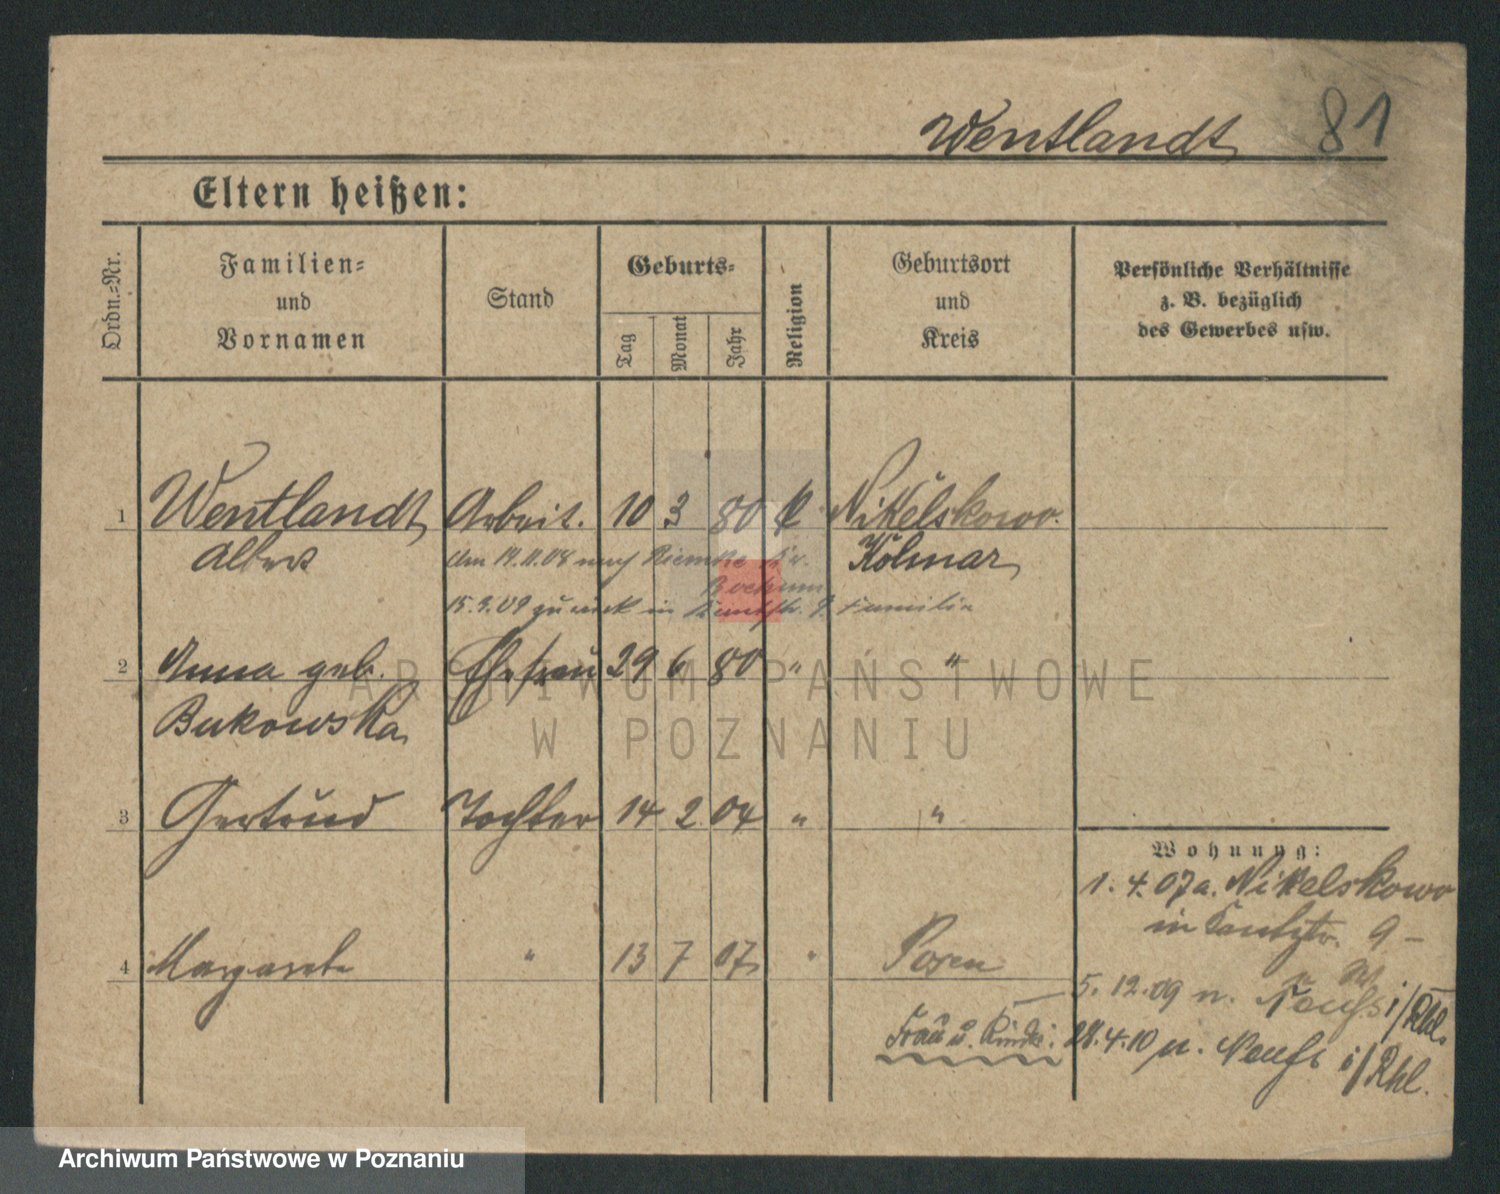 Wentlandt 81
Eltern heißen:
Ordn.-Nr.
Familien-
und
Vornamen
Stand
Geburts-
Tag
Monat
Jahr
Religion
Geburtsort
und
Kreis
Persönliche Verhältnisse
z. B. bezüglich
des Gewerbes usw.
1 Wentlandt Arbeit. 10 3 80 k Nikelskowo.
Albert Kolmar
Am 14.11.08 nach Riemke Kr.
Bochum
15.3.09 zurück in z. Familie
2 Anna geb. Ehefrau 29 6 80 " "
Bukowska
3 Gertrud Tochter 14 2 04 " "
4 Margarete " 13 7 07 " Posen
Wohnung:
1. 4. 07 a. Nikelskowo
in 9 –
5. 12. 09 n. Neuss i/Rhl.
Frau u. Kinder: 28.4.10 n. Neuss i/Rhl.
ARCHIWUM PAŃSTWOWE
W POZNANIU
Archiwum Państwowe w Poznaniu